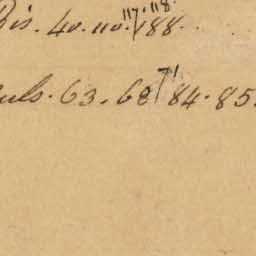 Bis. 40. 110. 117. 118. 188.
uls. 63. 68 71 84. 85.